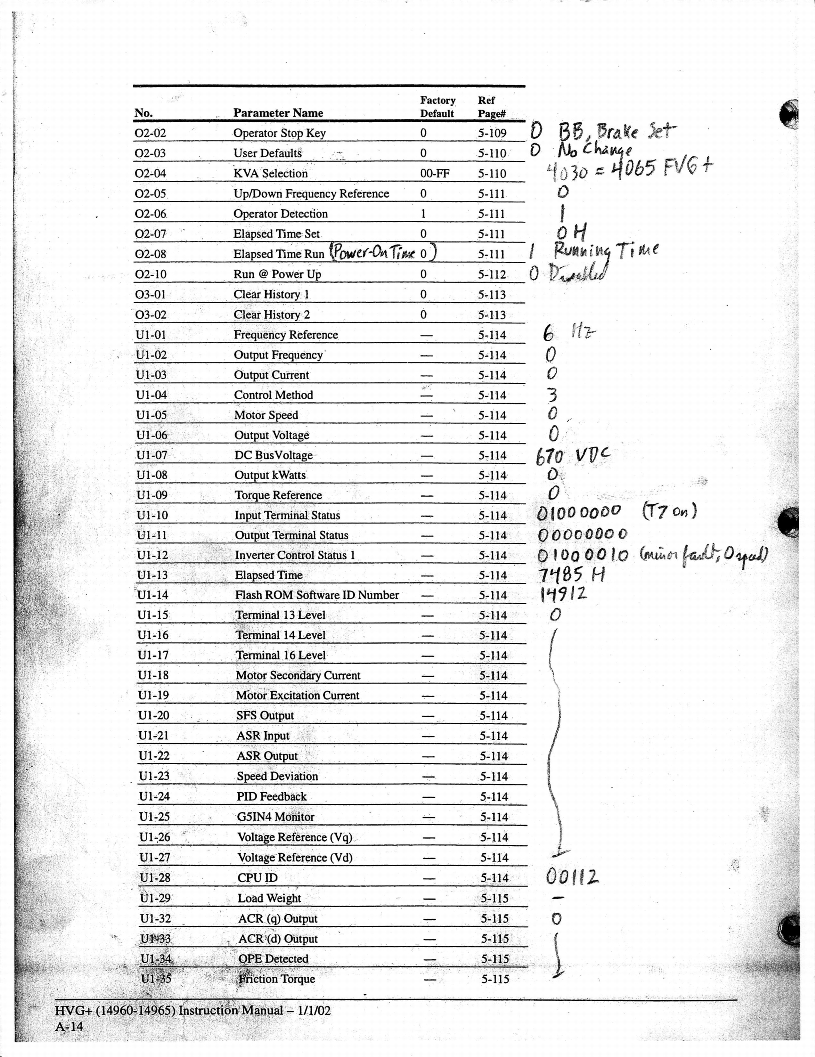 Factory Ref
No. Parameter Name Default Page#
O2-02 Operator Stop Key 0 5-109 0 BB, Brake Set
O2-03 User Defaults 0 5-110 0 No Change
O2-04 KVA Selection 00-FF 5-110 4030 = 4065 FVG+
O2-05 Up/Down Frequency Reference 0 5-111 0
O2-06 Operator Detection 1 5-111 1
O2-07 Elapsed Time Set 0 5-111 0 H
O2-08 Elapsed Time Run (Power-On Time 0) 5-111 1 Running Time
O2-10 Run @ Power Up 0 5-112 0 Disabled
O3-01 Clear History 1 0 5-113
O3-02 Clear History 2 0 5-113
U1-01 Frequency Reference — 5-114 6 Hz
U1-02 Output Frequency — 5-114 0
U1-03 Output Current — 5-114 0
U1-04 Control Method — 5-114 3
U1-05 Motor Speed — 5-114 0
U1-06 Output Voltage — 5-114 0
U1-07 DC BusVoltage — 5-114 670 VDC
U1-08 Output kWatts — 5-114 0
U1-09 Torque Reference — 5-114 0
U1-10 Input Terminal Status — 5-114 01000000 (T7 on)
U1-11 Output Terminal Status — 5-114 00000000
U1-12 Inverter Control Status 1 — 5-114 0100010 (minor fault, 0 speed)
U1-13 Elapsed Time — 5-114 7485 H
U1-14 Flash ROM Software ID Number — 5-114 14912
U1-15 Terminal 13 Level — 5-114 0
U1-16 Terminal 14 Level — 5-114
U1-17 Terminal 16 Level — 5-114
U1-18 Motor Secondary Current — 5-114
U1-19 Motor Excitation Current — 5-114
U1-20 SFS Output — 5-114
U1-21 ASR Input — 5-114
U1-22 ASR Output — 5-114
U1-23 Speed Deviation — 5-114
U1-24 PID Feedback — 5-114
U1-25 G5IN4 Monitor — 5-114
U1-26 Voltage Reference (Vq) — 5-114
U1-27 Voltage Reference (Vd) — 5-114
U1-28 CPU ID — 5-114 00112
U1-29 Load Weight — 5-115 –
U1-32 ACR (q) Output — 5-115 0
U1-33 ACR (d) Output — 5-115
U1-34 OPE Detected — 5-115
U1-35 Friction Torque — 5-115
HVG+ (14960-14965) Instruction Manual – 1/1/02
A-14